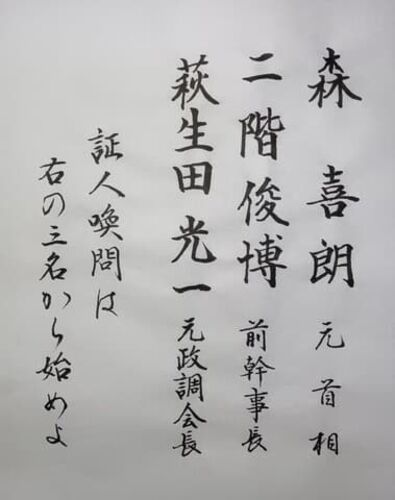 森 喜朗 元首相
二階俊博 前幹事長
萩生田光一 元政調会長
証人喚問は
右の三名から始めよ